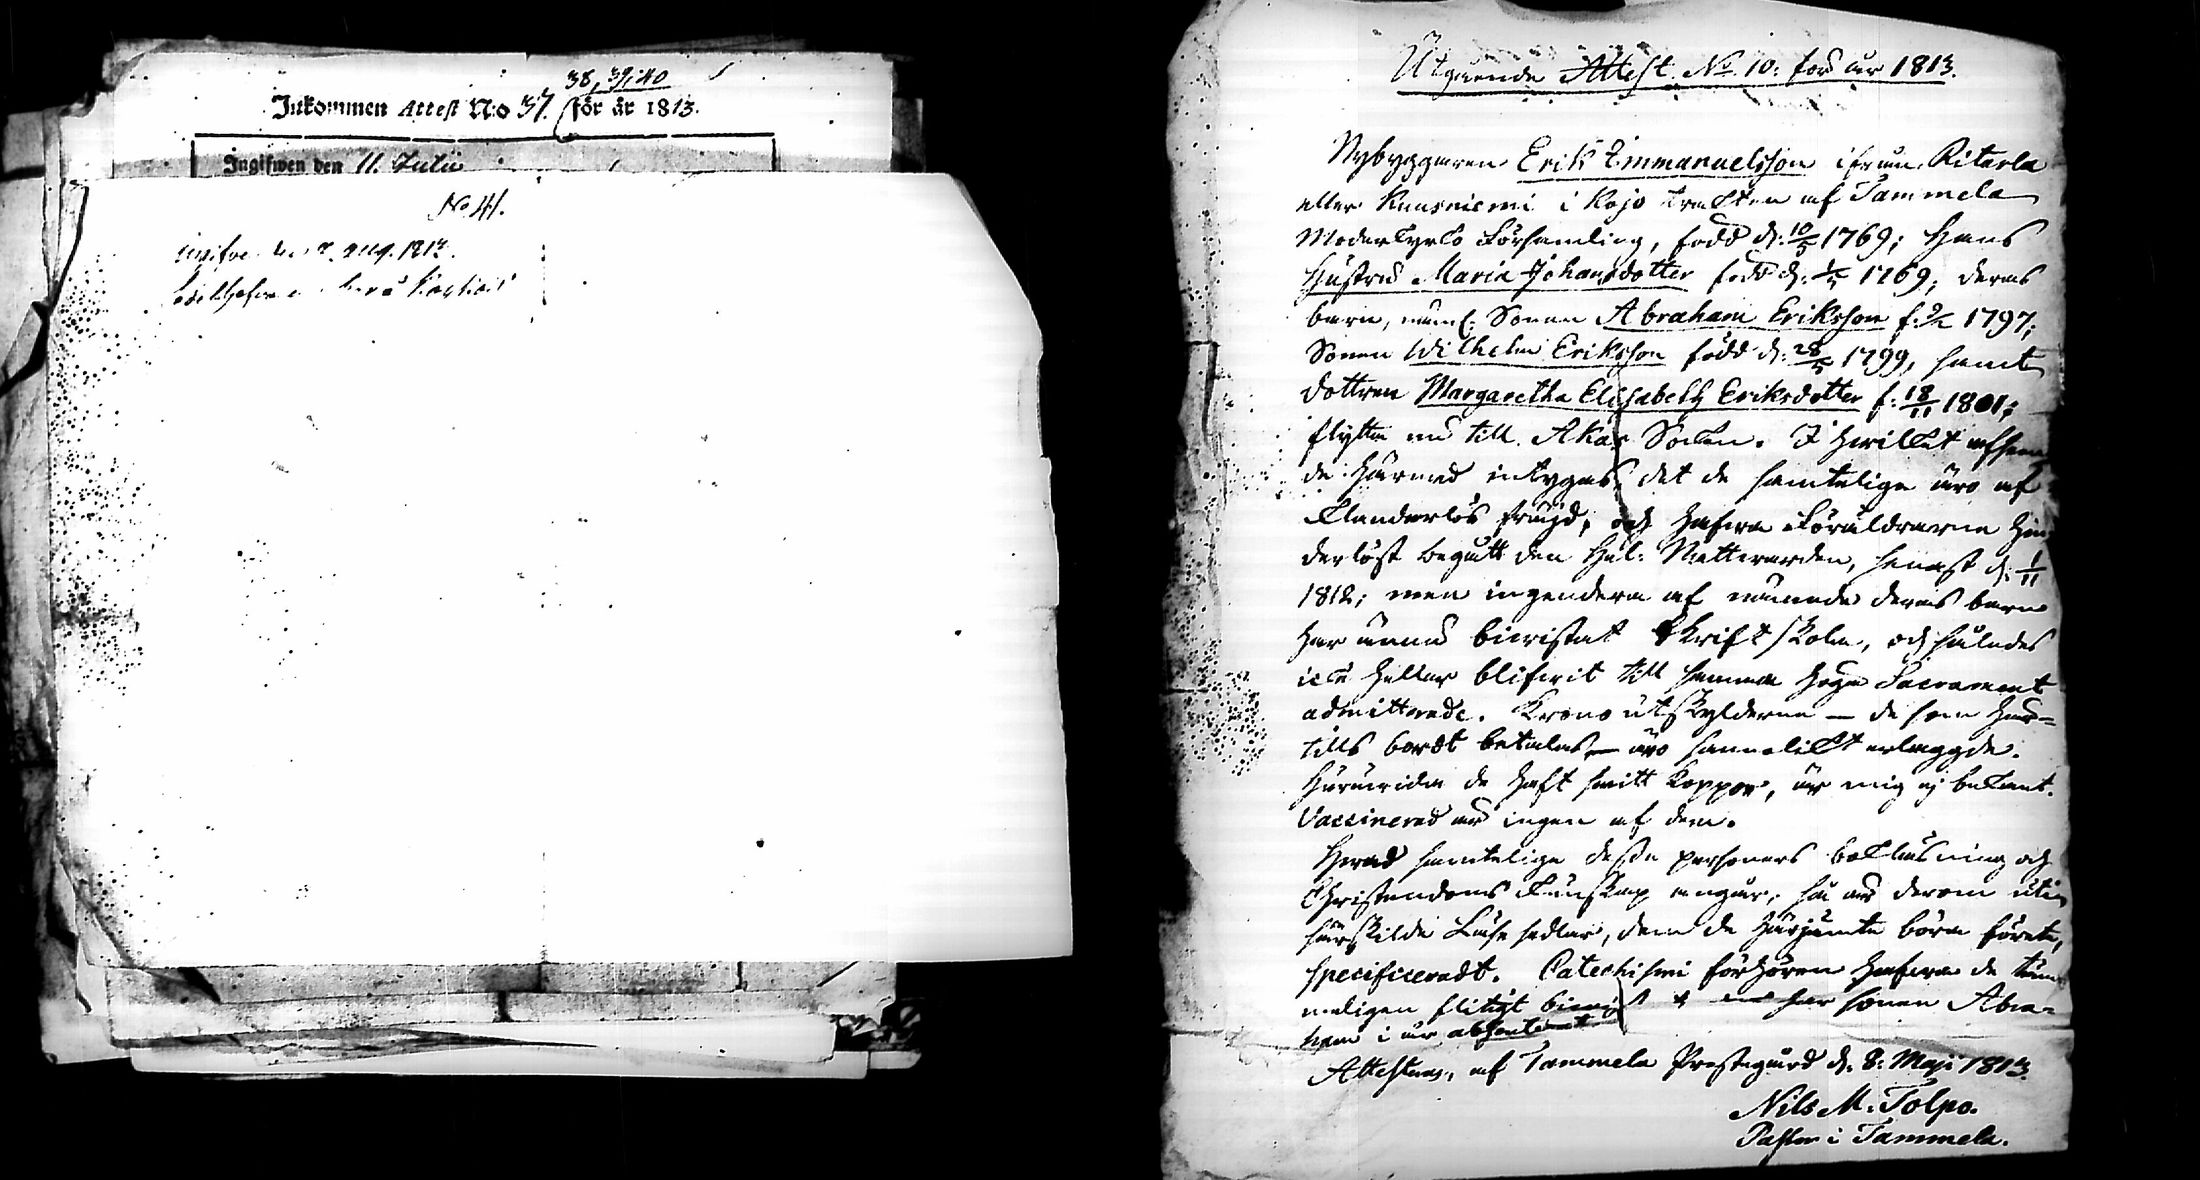 38, 39, 40
Inkommen Attest N:o 37. för år 1813.
Ingifwen den 11. Julii
No 41.
Aug. 1813.
Utgående Attest No 10: för år 1813.
Nybyggaren Erik Emmanuelsson ifrån Ritarla
eller Kuusniemi i Kojo trackten af Tammela
Moderkyrko Församling, född d: 10/5 1769; Hans
Hustru Maria Johansdotter född d: 1769; deras
barn, näml: Sonen Abraham Eriksson f: 1797;
Sonen Wilhelm Eriksson född d: 28/5 1799, samt
dottren Margaretha Elisabeth Eriksdotter f: 18/11 1801;
flytta nu till Akas Socken. I hwilket afseen
de härmed intygas, det de samtelige äro af
klanderlös frägd, och hafwa Föräldrarne hin
derlöst begått den Hel: Nattwarden, senast d: 1/11
1812; men ingendera af nämnde deras barn
har ännu biwistat Skriftskola, och således
icke heller blifwit till samma höga Sacrament
admitterade. Krono utskylderna – de som här=
tills bordt betalas – äro sannolikt erlaggde.
Huruvida de haft smitt Koppor, är mig ej bekant.
Vaccinerad är ingen af dem.
Hwad samtelige desse personers bokläsning och
Christendoms kunskap angår, så är derom uti
särskilde Läse sedlar, dem de härjämte böra förete,
specificeradt. Catechismi förhören hafwa de täm
meligen flitigt har sonen Abra=
ham i år absenterat
Attesteras, af Tammela Prestegård d. 8. Maji 1813.
Nils M. Tolpo.
Pastor i Tammela.